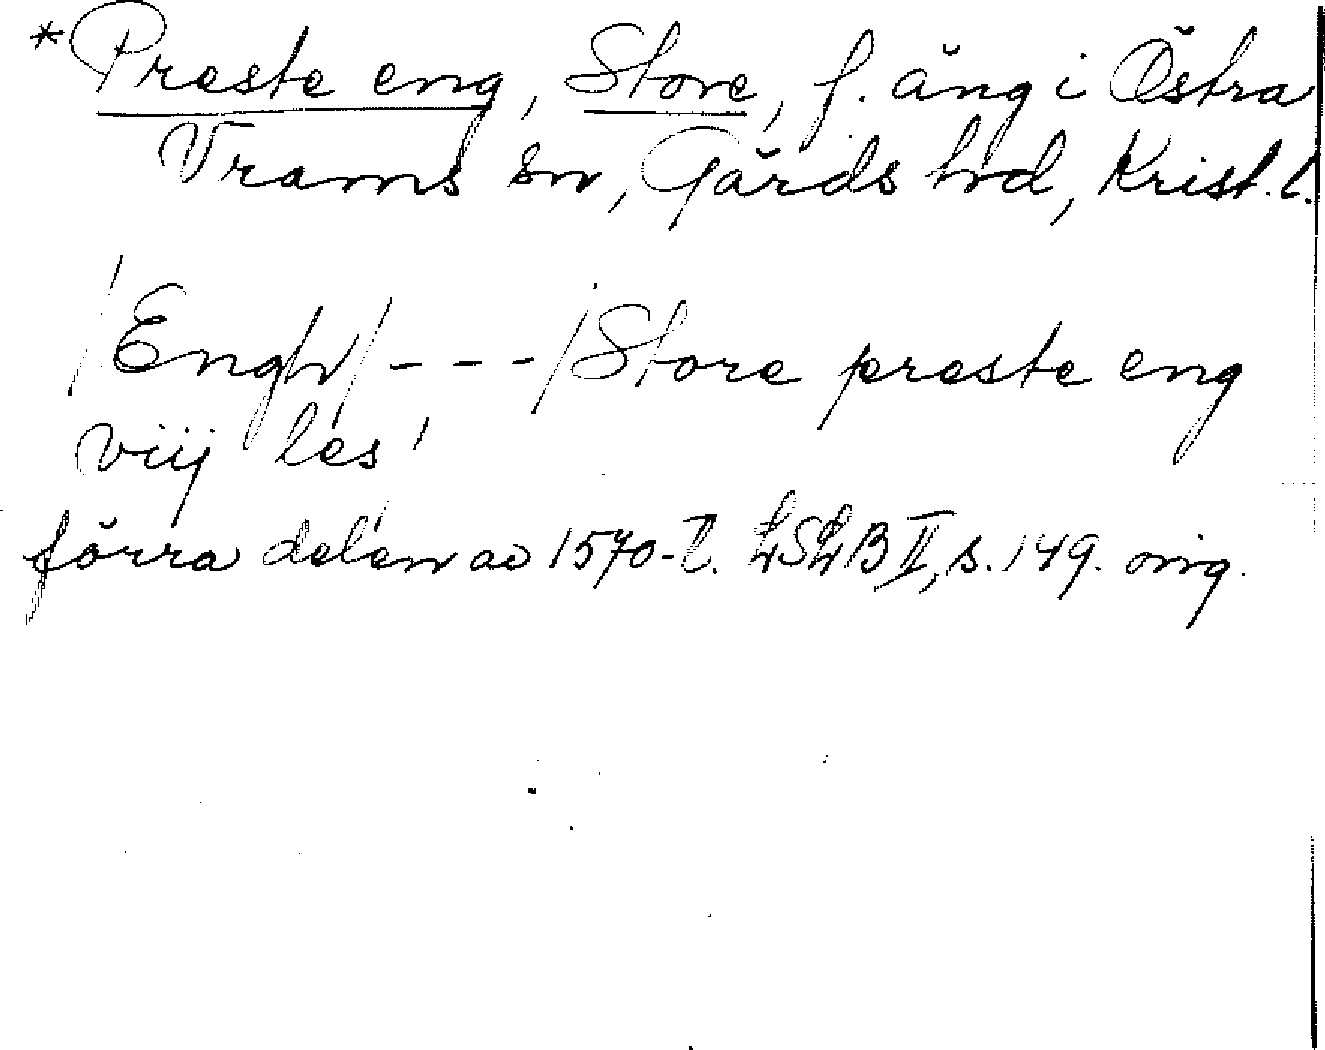 * Preste eng, Store, f. äng i Östra
Vrams sn, Gärds hd, Krist. l.
/Engh/ - - - /Store preste eng
viij les'
förra delen av 1570-t. LSLB II, s. 149. orig.